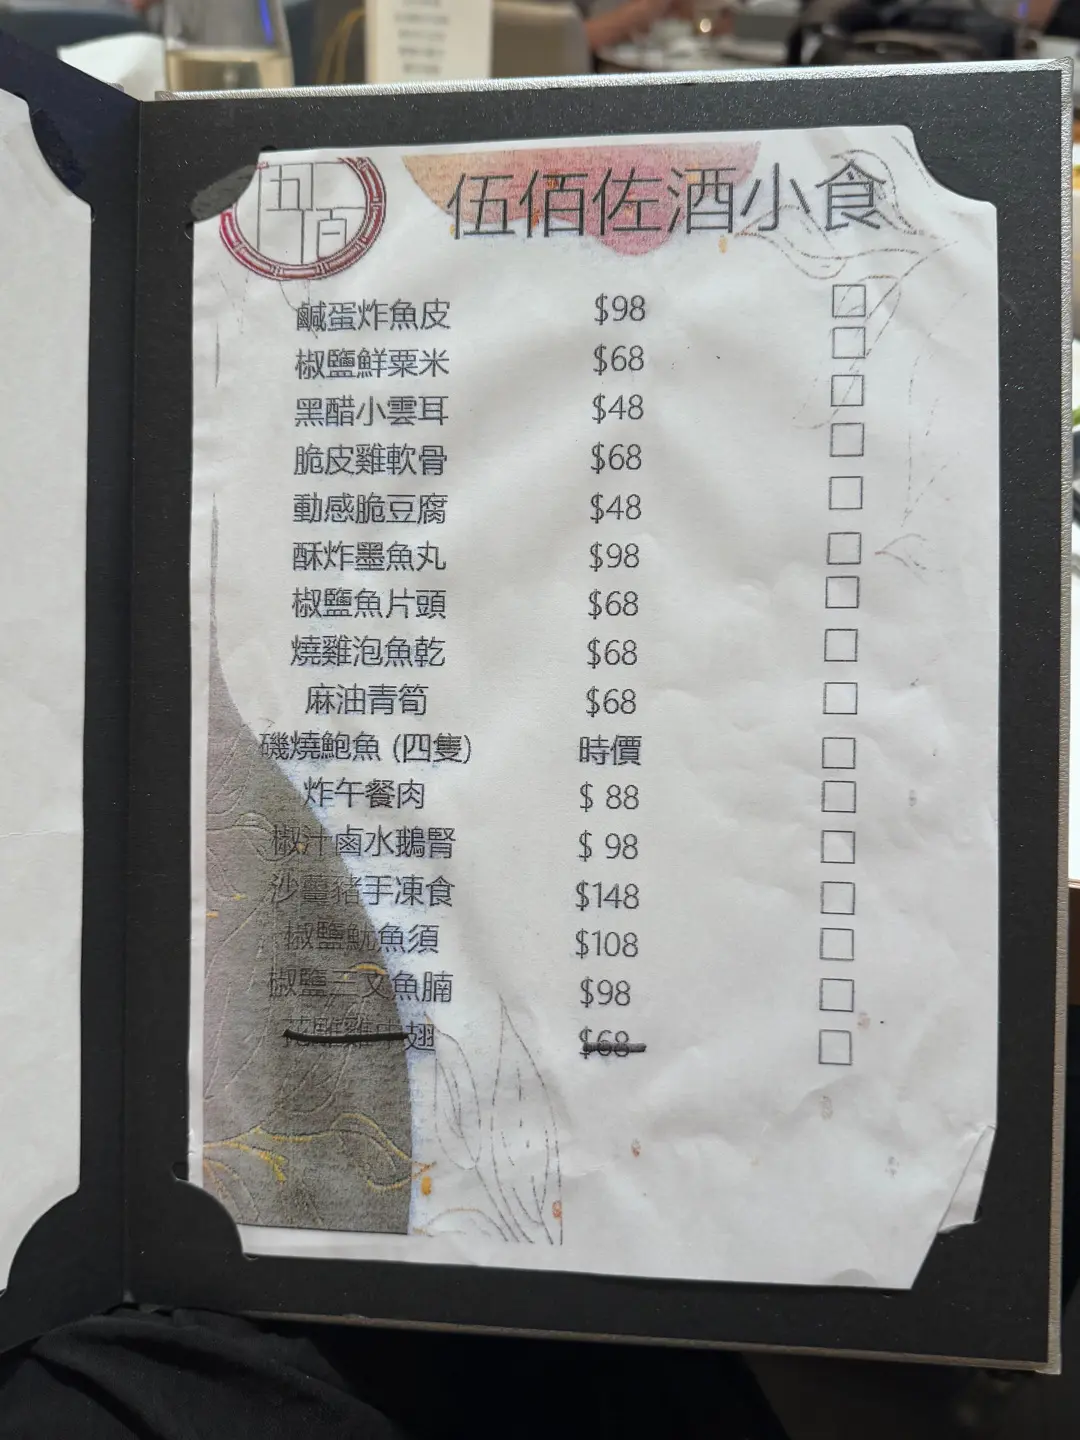 伍佰
伍佰佐酒小食
鹹蛋炸魚皮 $98
椒鹽鮮粟米 $68
黑醋小雲耳 $48
脆皮雞軟骨 $68
動感脆豆腐 $48
酥炸墨魚丸 $98
椒鹽魚片頭 $68
燒雞泡魚乾 $68
麻油青筍 $68
磯燒鮑魚 (四隻) 時價
炸午餐肉 $ 88
椒汁鹵水鵝腎 $ 98
沙薑豬手凍食 $148
椒鹽魷魚須 $108
椒鹽三文魚腩 $98
花雕雞中翅 $68